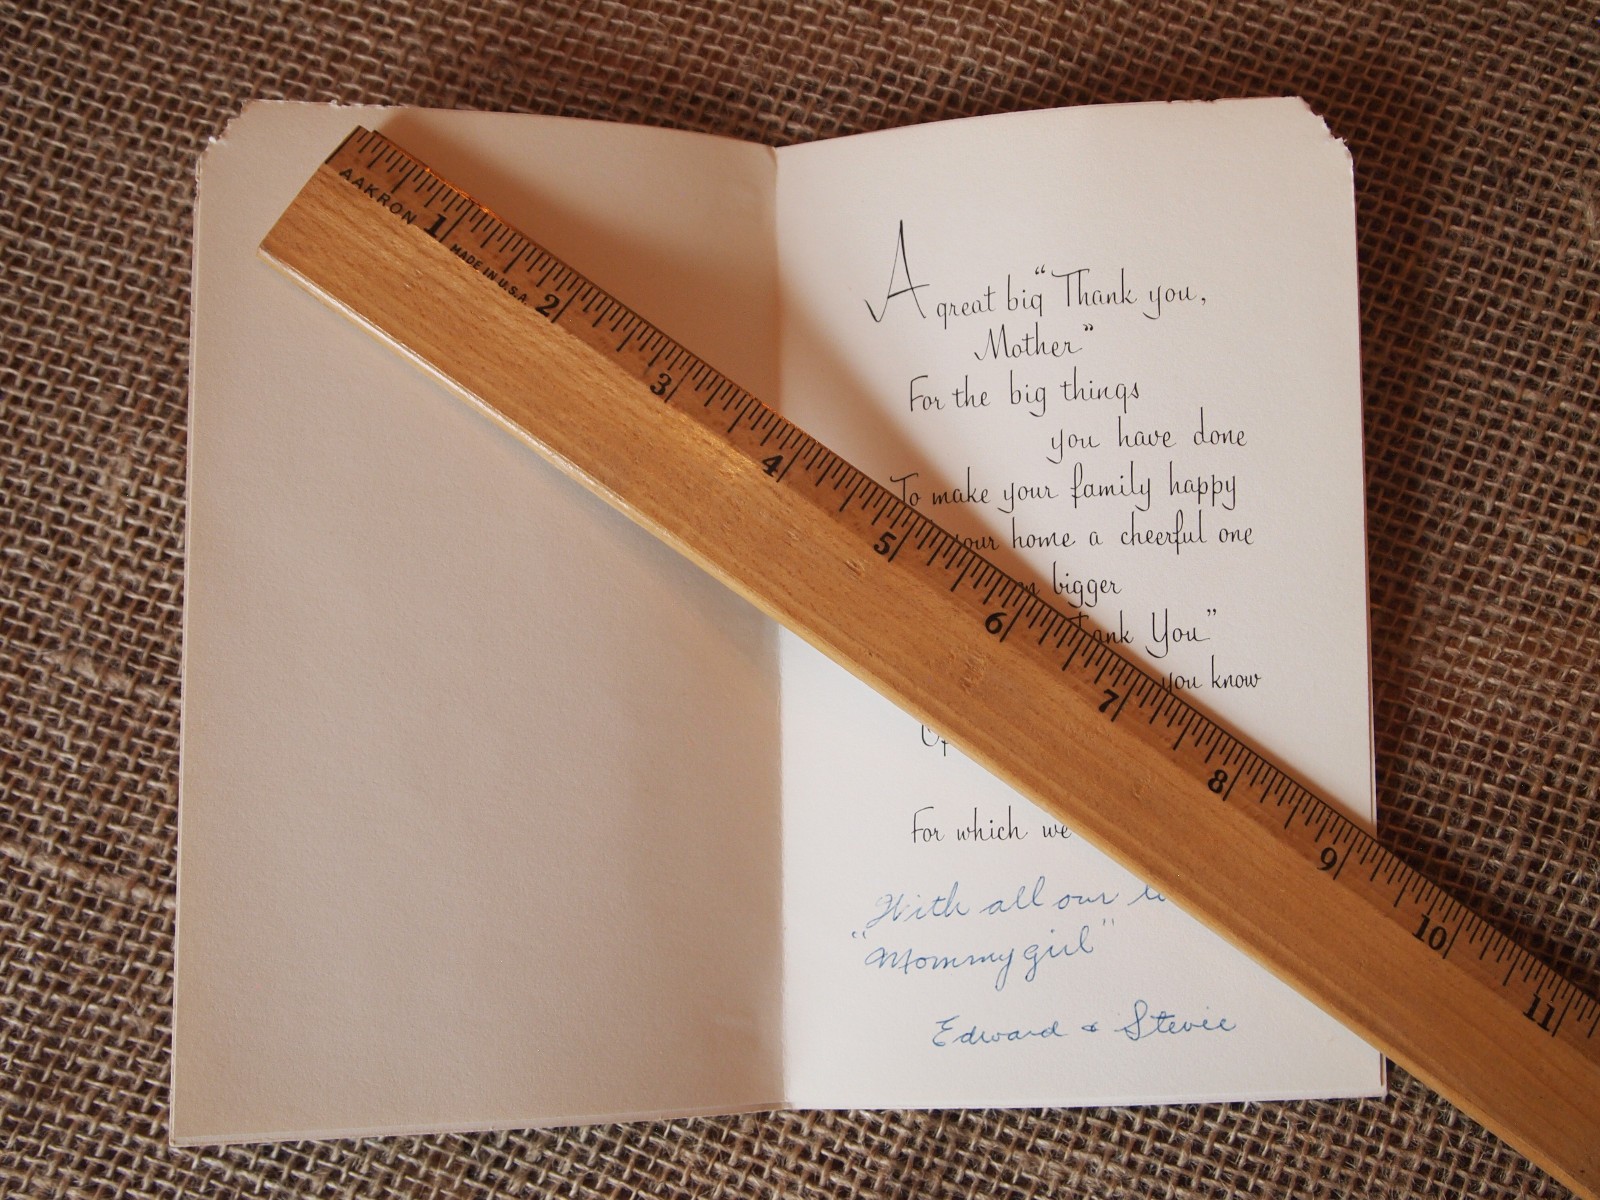 AAKRON
MADE IN U.S.A.
1 2 3 4 5 6 7 8 9 10 11
A great big "Thank you,
Mother"
For the big things
you have done
To make your family happy
your home a cheerful one
bigger
You"
you know
For which we
With all our
"Mommygirl"
Edward & Stevie